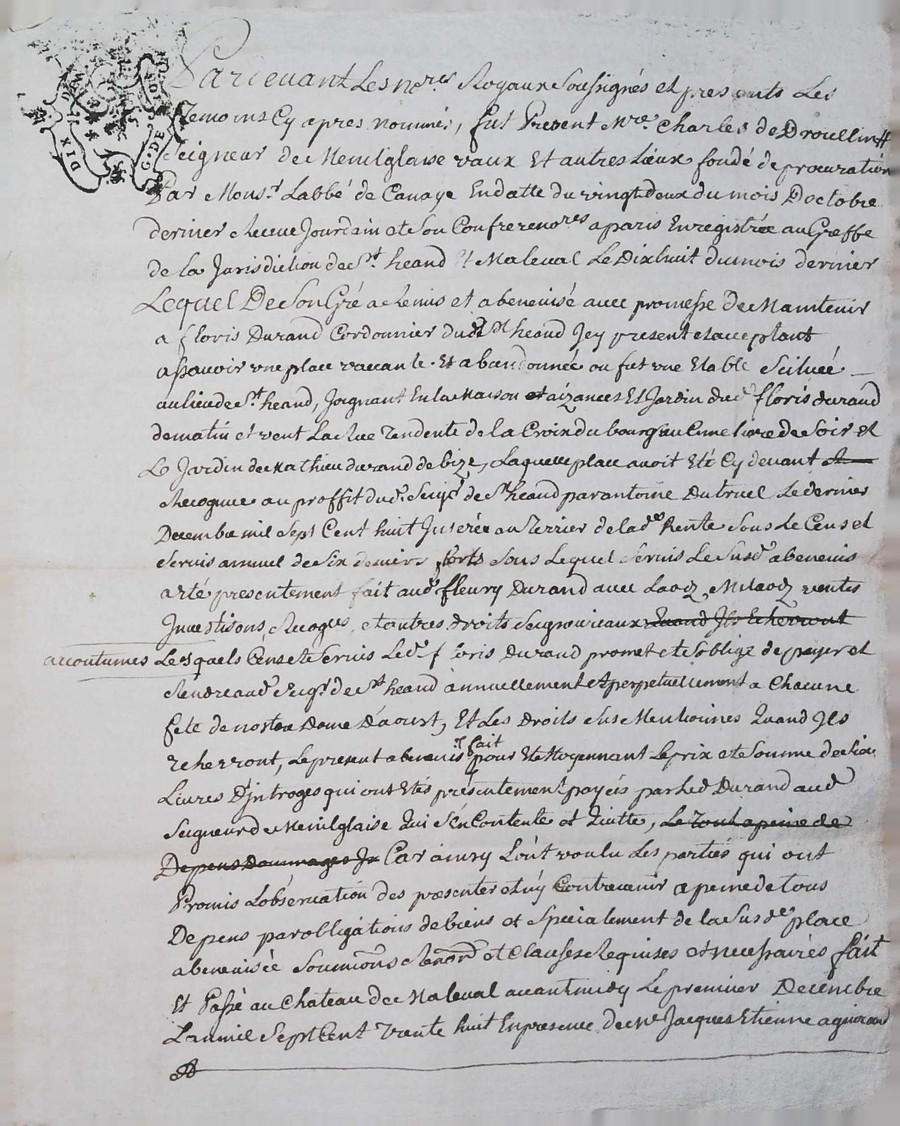 DIX DEN
G. DE
Pardevant Les no.res Royaux Soussignés et presents Les
Temoins Cy apres nommés, fut Present M.re Charles de Droullin
Seigneur de Menilglaise vaux Et autres Lieux fondé de procuration
Par Mons.r Labbé de Canaye Endatte du vingtdeux du mois Doctobre
dernier Receue Jourdain et Son Confrere no.res a paris Enregistrée au Greffe
de la Jurisdiction de S.t heand Et Maleval Le Dixhuit du mois dernier
Lequel De Son Gré a Remis et abenevisé avec promesse de Maintenir
a floris Durand Cordonnier dud. S.t heand Jcy present et acceptant
assavoir une place vaccante Et abandonnée ou fut une Etable Scituée
au lieu de S.t heand, Joignant En la Maison et aizances Et Jardin dud. floris durand
de matin et vent La Rue Tendente de la Croix du bourg au Cimetiere de Soir et
Le Jardin de Mathieu durand de bize, Laquelle place avoit Eté Cy devant
Recognue au proffit dud. Seig.r de S.t heand par antoine Dutruel Le dernier
Decembre mil Sept Cent huit Inserée au Terrier de lad. Rente Sous Le Cens et
Servis annuel de Six deniers forts Sous Lequel Servis Le Susd. abenevis
a eté presentement fait aud. fleury Durand avec Laodz, Milaodz ventes
Investisons, Recog.es, et autres droits Seigneuriaux quand Jls Echerront
accoutumés Lesquels Cens et Servis Led. floris Durand promet et Soblige de payer et
Rendre aud. Seig.r de S.t heand annuellement et perpetuellement a Chacune
fete de nostre Dame Daoust, Et Les Droits Sus Mentionnes Quand Jls
echerront, Le present abenevis fait pour Et Moyennant Le prix et Somme de
Livres Dintroges qui ont Etés présentement payées par Led. Durand aud.
Seigneur de Menilglaise qui S'en Contente et Quitte, Le Tout a peine de
Depens Dommages Car ainsy Lont voulu Les parties qui ont
Promis L'observation des presentes et n'y Contrevenir a peine de tous
Depens par obligations de biens et Specialement de la Sus d.e place
abenevisée Soumions Renon.ons et Clauses Requises et necessaires fait
Et Passé au Chateau de Maleval avant midy Le premier Decembre
Lan mil Sept Cent Trente huit En presence de M.e Jacques Etienne aguiraud